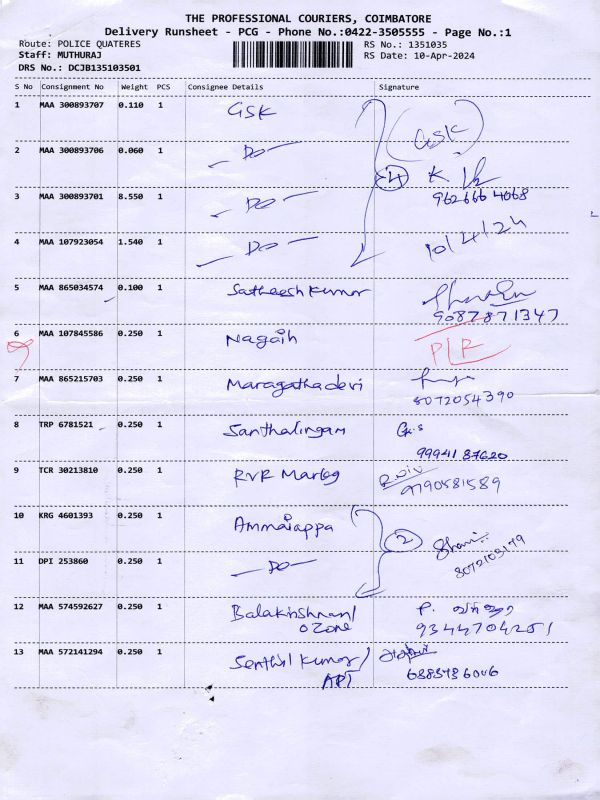 THE PROFESSIONAL COURIERS, COIMBATORE
Delivery Runsheet - PCG - Phone No.:0422-3505555 - Page No.:1
Route: POLICE QUATERES RS No.: 1351035
Staff: MUTHURAJ RS Date: 10-Apr-2024
DRS No.: DCJB135103501
S No Consignment No Weight PCS Consignee Details Signature
1 MAA 300893707 0.110 1 GSK
(GSK)
2 MAA 300893706 0.060 1 — DO —
4 K.
3 MAA 300893701 8.550 1 — DO — 962666 4068
4 MAA 107923054 1.540 1 — DO — 10/4/24
5 MAA 865034574 0.100 1 Satheesh Kumar
9087871347
6 MAA 107845586 0.250 1 Nagaih P/R
7 MAA 865215703 0.250 1 Maragathadevi
8072054390
8 TRP 6781521 0.250 1 Santhalingam
99941 87620
9 TCR 30213810 0.250 1 RVR Marbg
9790581589
10 KRG 4601393 0.250 1 Ammaiappa
2
11 DPI 253860 0.250 1 — DO —
12 MAA 574592627 0.250 1 Balakrishnan/ P.
OZone 9344704251
13 MAA 572141294 0.250 1 Senthil Kumar/
API